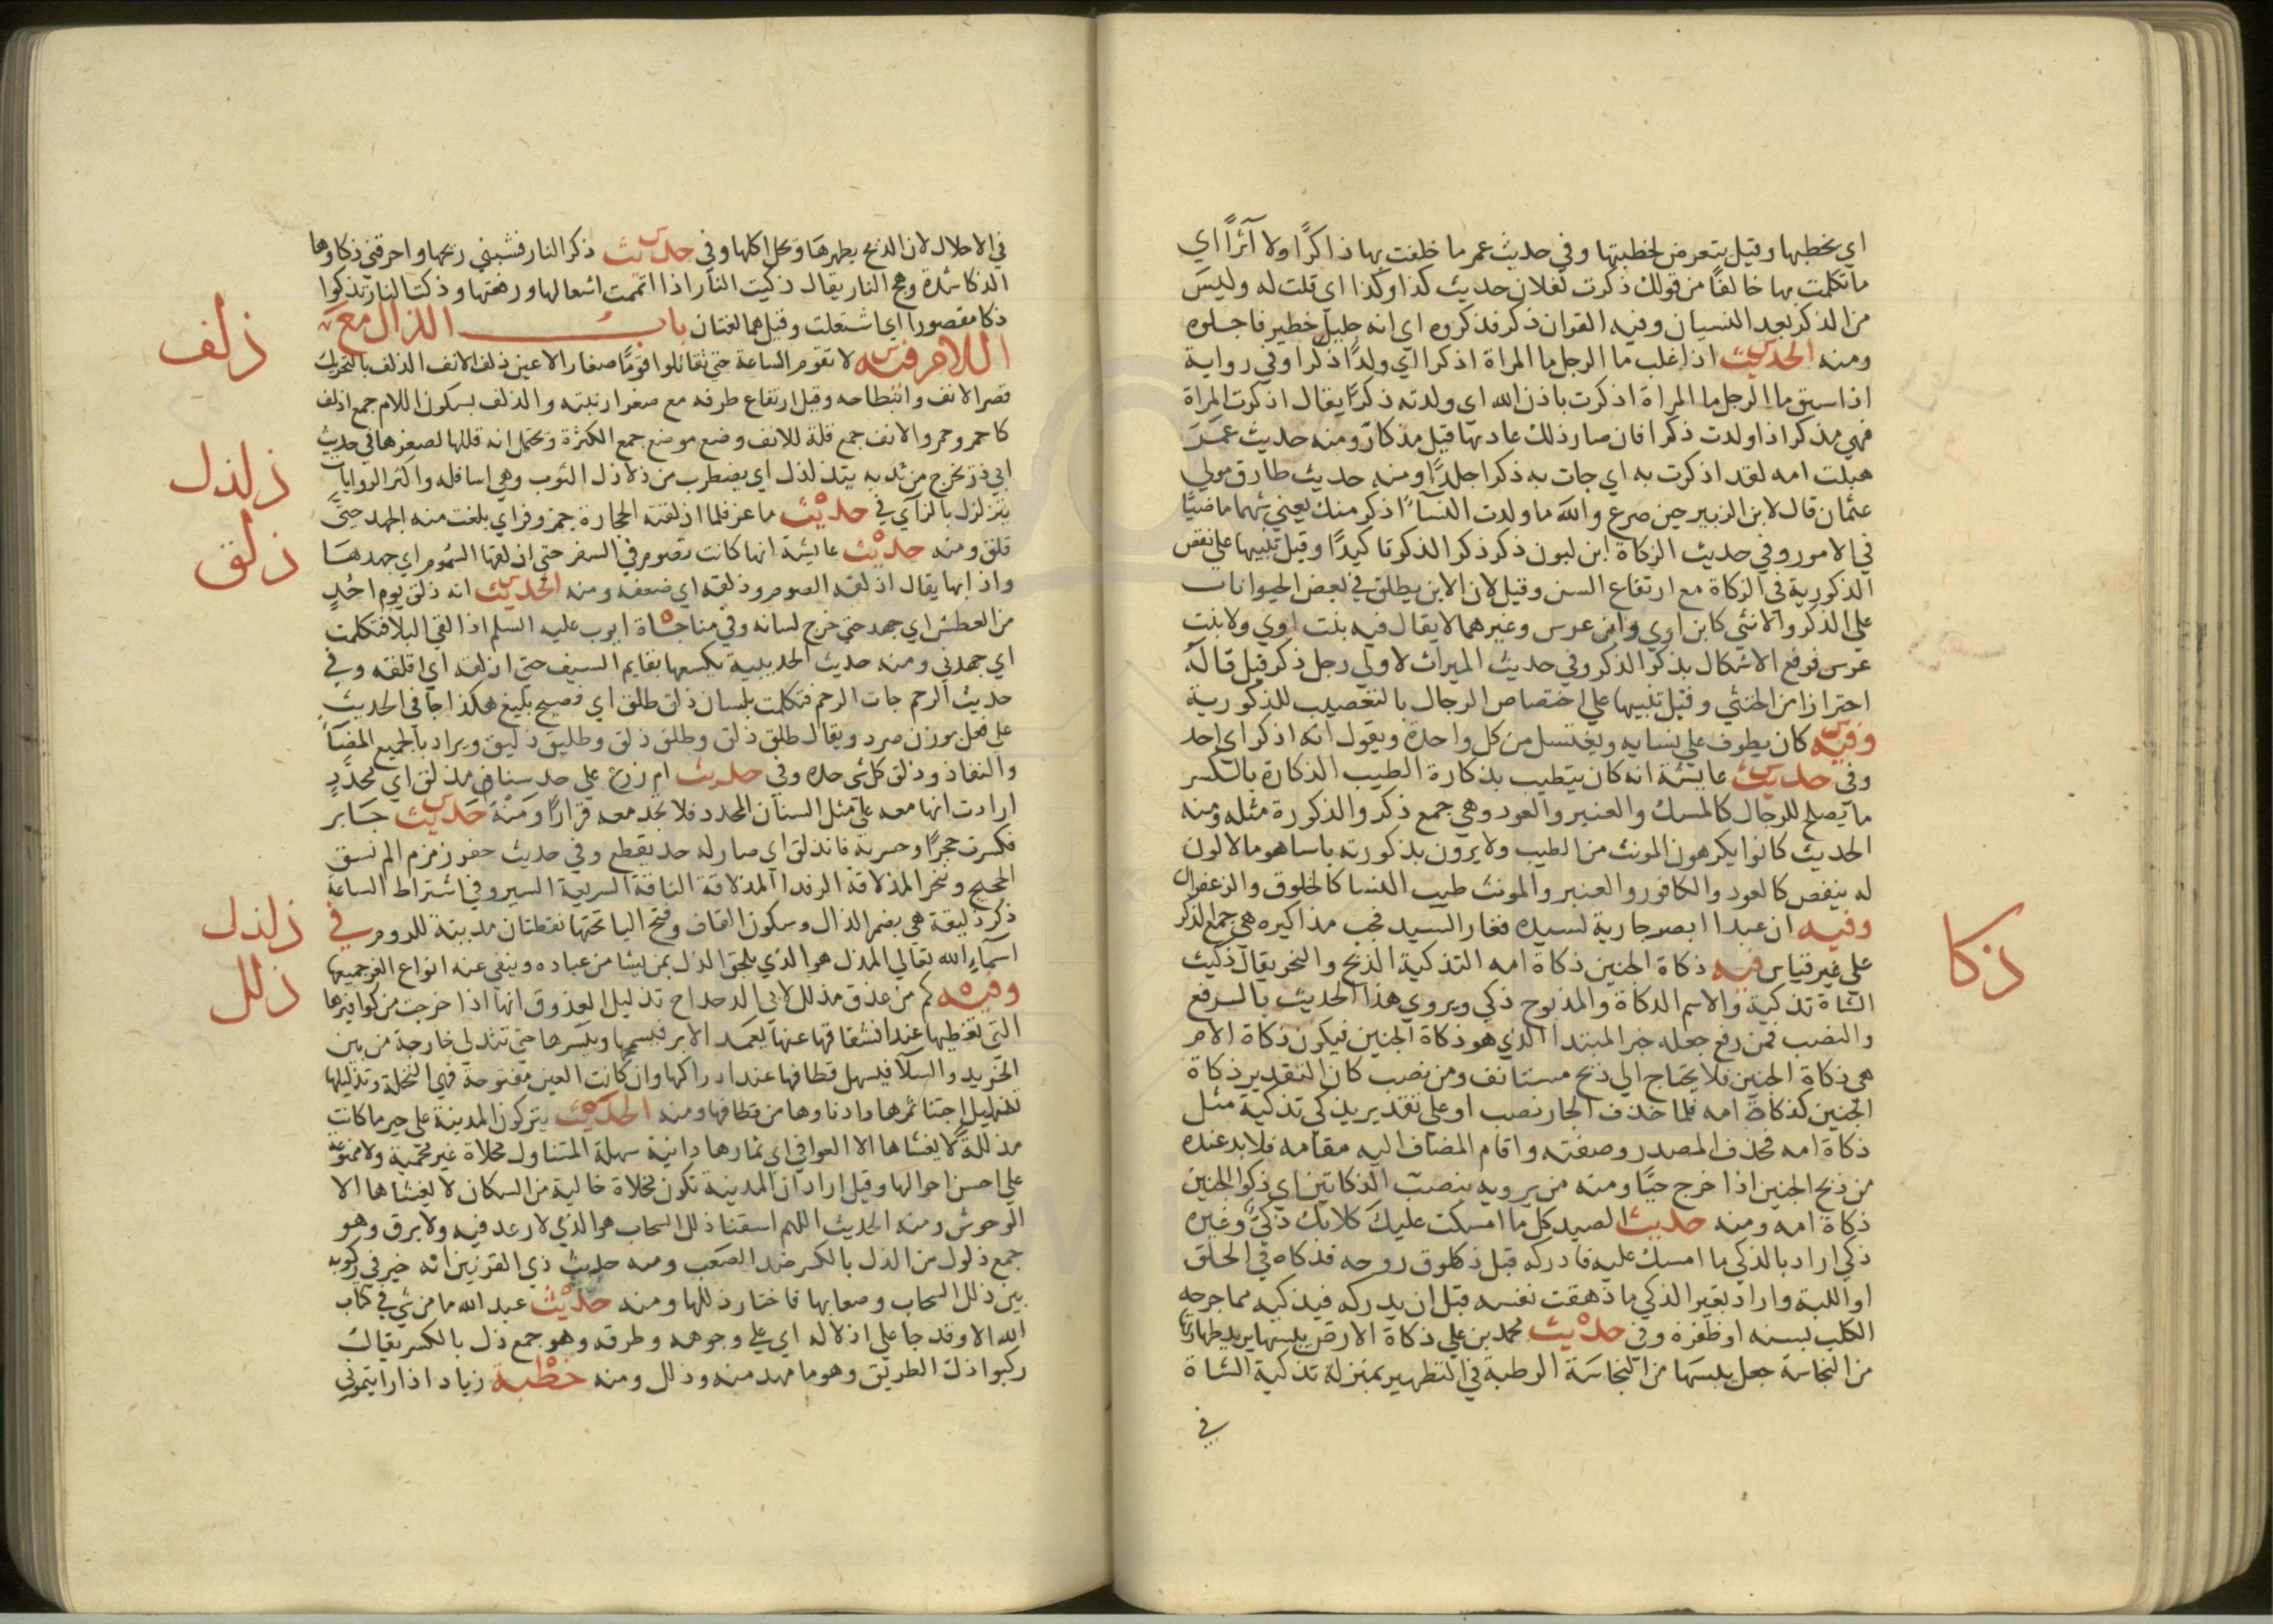 اي يخطبها وقيل يتعرض لخطبتها وفي حديث عمر ما حلفت بها ذاكرًا ولا آثرًا اي
ما تكلمت بها حالفًا من قولك ذكرت لفلان حديث كذا وكذا اي قلت له وليس
من الذكر بعد النسيان وفيه القران ذكر فذكروه اي انه جليل خطير فاجلوه
ومنه الحديث اذا غلب ما الرجل ما المراة اذكرا اي ولدًا ذكرا وفي رواية
اذا سبق ما الرجل ما المراة اذكرت باذن الله اي ولدته ذكرًا يقال اذكرت المراة
فهي مذكر اذا ولدت ذكرا فان صار ذلك عادتها قيل مذكار ومنه حديث عمر
هبلت امه لقد اذكرت به اي جات به ذكرا جلدًا ومنه حديث طارق مولي
عثمان قال لابن الزبير حين صرع والله ما ولدت النساء اذكر منك يعني شهما ماضيًا
في الامور وفي حديث الزكاة ابن لبون ذكر ذكر الذكر تاكيدًا وقيل تنبيها علي نقص
الذكورية في الزكاة مع ارتفاع السن وقيل لان الابن يطلق في بعض الحيوانات
علي الذكر والانثي كابن اوي وابن عرس وغيرهما لا يقال فيه بنت اوي ولا بنت
عرس فرفع الاشكال بذكر الذكر وفي حديث الميراث لاولي رجل ذكر قيل قاله
احترازا من الخنثي وقيل تنبيها علي اختصاص الرجال بالتعصيب للذكورية
وفيه كان يطوف علي نسايه ويغتسل من كل واحدة ويقول انه اذكر اي احد
وفي حديث عايشة انه كان يتطيب بذكارة الطيب الذكارة بالكسر
ما يصلح للرجال كالمسك والعنبر والعود وهي جمع ذكر والذكورة مثله ومنه
الحديث كانوا يكرهون المونث من الطيب ولا يرون بذكورته باسا هو ما لا لون
له ينفض كالعود والكافور والعنبر والمونث طيب النسا كالخلوق والزعفران
وفيه ان عبدا ابصر جارية لسيده فغار السيد فجب مذاكيره هي جمع الذكر
علي غير قياس فيه ذكاة الجنين ذكاة امه التذكية الذبح والنحر يقال ذكيت
الشاة تذكية والاسم الذكاة والمذبوح ذكي ويروي هذا الحديث بالرفع
والنصب فمن رفع جعله خبر المبتدا الذي هو ذكاة الجنين فيكون ذكاة الام
هي ذكاة الجنين فلا يحتاج الي ذبح مستانف ومن نصب كان التقدير ذكاة
الجنين كذكاة امه فلما حذف الجار نصب او علي تقدير يذكي تذكية مثل
ذكاة امه فحذف المصدر وصفته واقام المضاف اليه مقامه فلا بد عنده
من ذبح الجنين اذا خرج حيًا ومنه من يرويه بنصب الذكاتين اي ذكوا الجنين
ذكاة امه ومنه حديث الصيد كل ما امسكت عليك كلابك ذكيّ وغيره
ذكي اراد بالذكي ما امسك عليه فادركه قبل زهوق روحه فذكاه في الحلق
او اللبة واراد بغير الذكي ما ذهقت نفسه قبل ان يدركه فيذكيه مما جرحه
الكلب بسنه او ظفره وفي حديث محمد بن علي ذكاة الارض يبسها يريد طهارتها
من النجاسة جعل يبسها من النجاسة الرطبة في التطهير بمنزلة تذكية الشاة
في
ذكا
في الاحلال لان الذبح يطهرها ويحل اكلها وفي حديث ذكر النار قشبني ريحها واحرقني ذكاوها
الذكا شدة وهج النار يقال ذكيت النار اذا اتممت اشعالها ورفعتها وذكت النار تذكوا
ذكا مقصورا اي اشتعلت وقيل هما لغتان باب الذال مع
اللام فيه لا تقوم الساعة حتي تقاتلوا قومًا صغار الاعين ذلف الانف الذلف بالتحريك
قصر الانف وانبطاحه وقيل ارتفاع طرفه مع صغر ارنبته والذلف بسكون اللام جمع اذلف
كاحمر وحمر والانف جمع قلة للانف وضع موضع جمع الكثرة ويحتمل انه قللها لصغرها في حديث
ابي ذر يخرج من ثديه يتذلذل اي يضطرب من ذلاذل الثوب وهي اسافله واكثر الروايات
يتزلزل بالزاي في حديث ماعز فلما اذلقته الحجارة جمز وفر اي بلغت منه الجهد حتي
قلق ومنه حديث عايشة انها كانت تصوم في السفر حتي اذلقها السموم اي جهدها
واذابها يقال اذلقه الصوم وذلقه اي ضعفه ومنه الحديث انه ذلق يوم احد
من العطش اي جهد حتي خرج لسانه وفي مناجاة ايوب عليه السلم اذلقني البلا فتكلمت
اي جهدني ومنه حديث الحديبية يكسعها بقايم السيف حتي اذلقه اي اقلقه وفي
حديث الرحم جات الرحم فتكلمت بلسان ذلق طلق اي فصيح بليغ هكذا جا في الحديث
علي فعل بوزن صرد ويقال طلق ذلق وطلق ذلق وطليق ذليق ويراد بالجميع المضا
والنفاذ وذلق كل شي حده وفي حديث ام زرع علي حد سنان مذلق اي محدد
ارادت انها معه علي مثل السنان المحدد فلا تجد معه قرارًا ومنه حديث جابر
فكسرت حجرًا وحسرته فانذلق اي صار له حد يقطع وفي حديث حفر زمزم الم نسق
الحجيج وننحر المذلاقة الرفدا المذلاقة الناقة السريعة السير وفي اشتراط الساعة
ذكر ذلقية هي بضم الذال وسكون القاف وفتح اليا تحتها نقطتان مدينة للروم في
اسماء الله تعالي المذل هو الذي يلحق الذل بمن يشا من عباده وينفي عنه انواع العز جميعها
وفيه كم من عذق مذلل لابي الدحداح تذليل العذوق انها اذا خرجت من كوافيرها
التي تغطيها عند انشقاقها عنها يعمد الابر فيسمحها ويكسرها حتي تتدلي خارجة من بين
الجريد والسلا فيسهل قطافها عند ادراكها وان كانت العين مفتوحة فهي النخلة وتذليلها
تسهيل اجتنا ثمرها وادناوها من قطافها ومنه الحديث يتركون المدينة علي خير ما كانت
مذللة لا يغشاها الا العوافي اي ثمارها دانية سهلة المتناول مخلاة غير محمية ولا ممنوعة
علي احسن احوالها وقيل اراد ان المدينة تكون مخلاة خالية من السكان لا يغشاها الا
الوحوش ومنه الحديث اللهم اسقنا ذلل السحاب هو الذي لا رعد فيه ولا برق وهو
جمع ذلول من الذل بالكسر ضد الصعب ومنه حديث ذي القرنين انه خير في ركوبه
بين ذلل السحاب وصعابها فاختار ذللها ومنه حديث عبد الله ما من شي في كتاب
الله الا وقد جا علي اذلاله اي علي وجوهه وطرقه وهو جمع ذل بالكسر يقال
ركبوا ذل الطريق وهو ما مهد منه وذلل ومنه خطبة زياد اذا رايتموني
ذلف
ذلذل
ذلق
ذلذل
ذلل